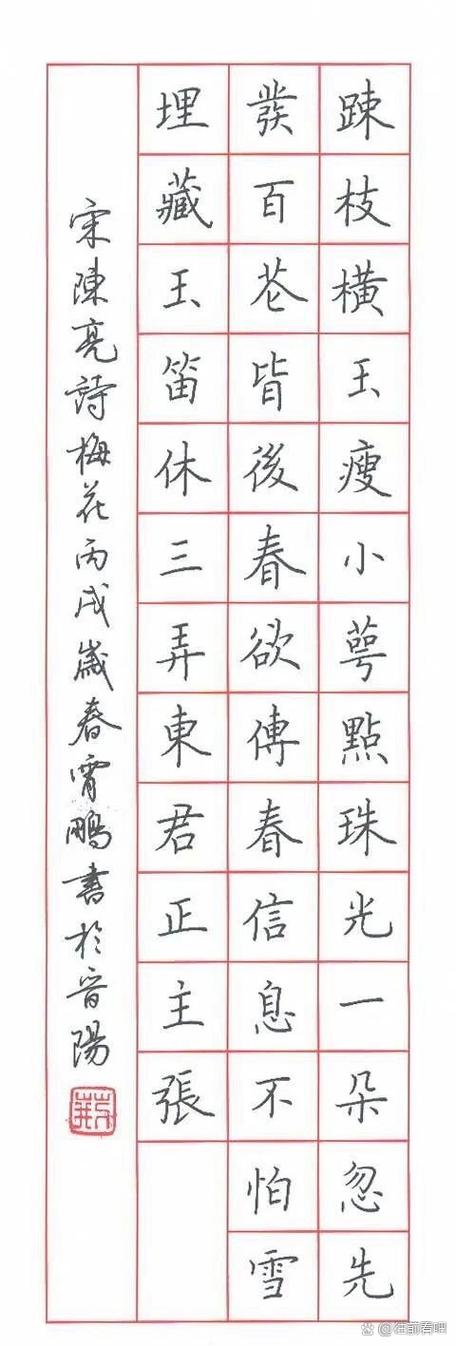 踈枝橫玉瘦小萼點珠光一朵忽先
發百花皆後春欲傳春信息不怕雪
埋藏玉笛休三弄東君正主張
宋陳亮詩梅花丙戌歲春霄鵬書於晉陽
@往前看吧